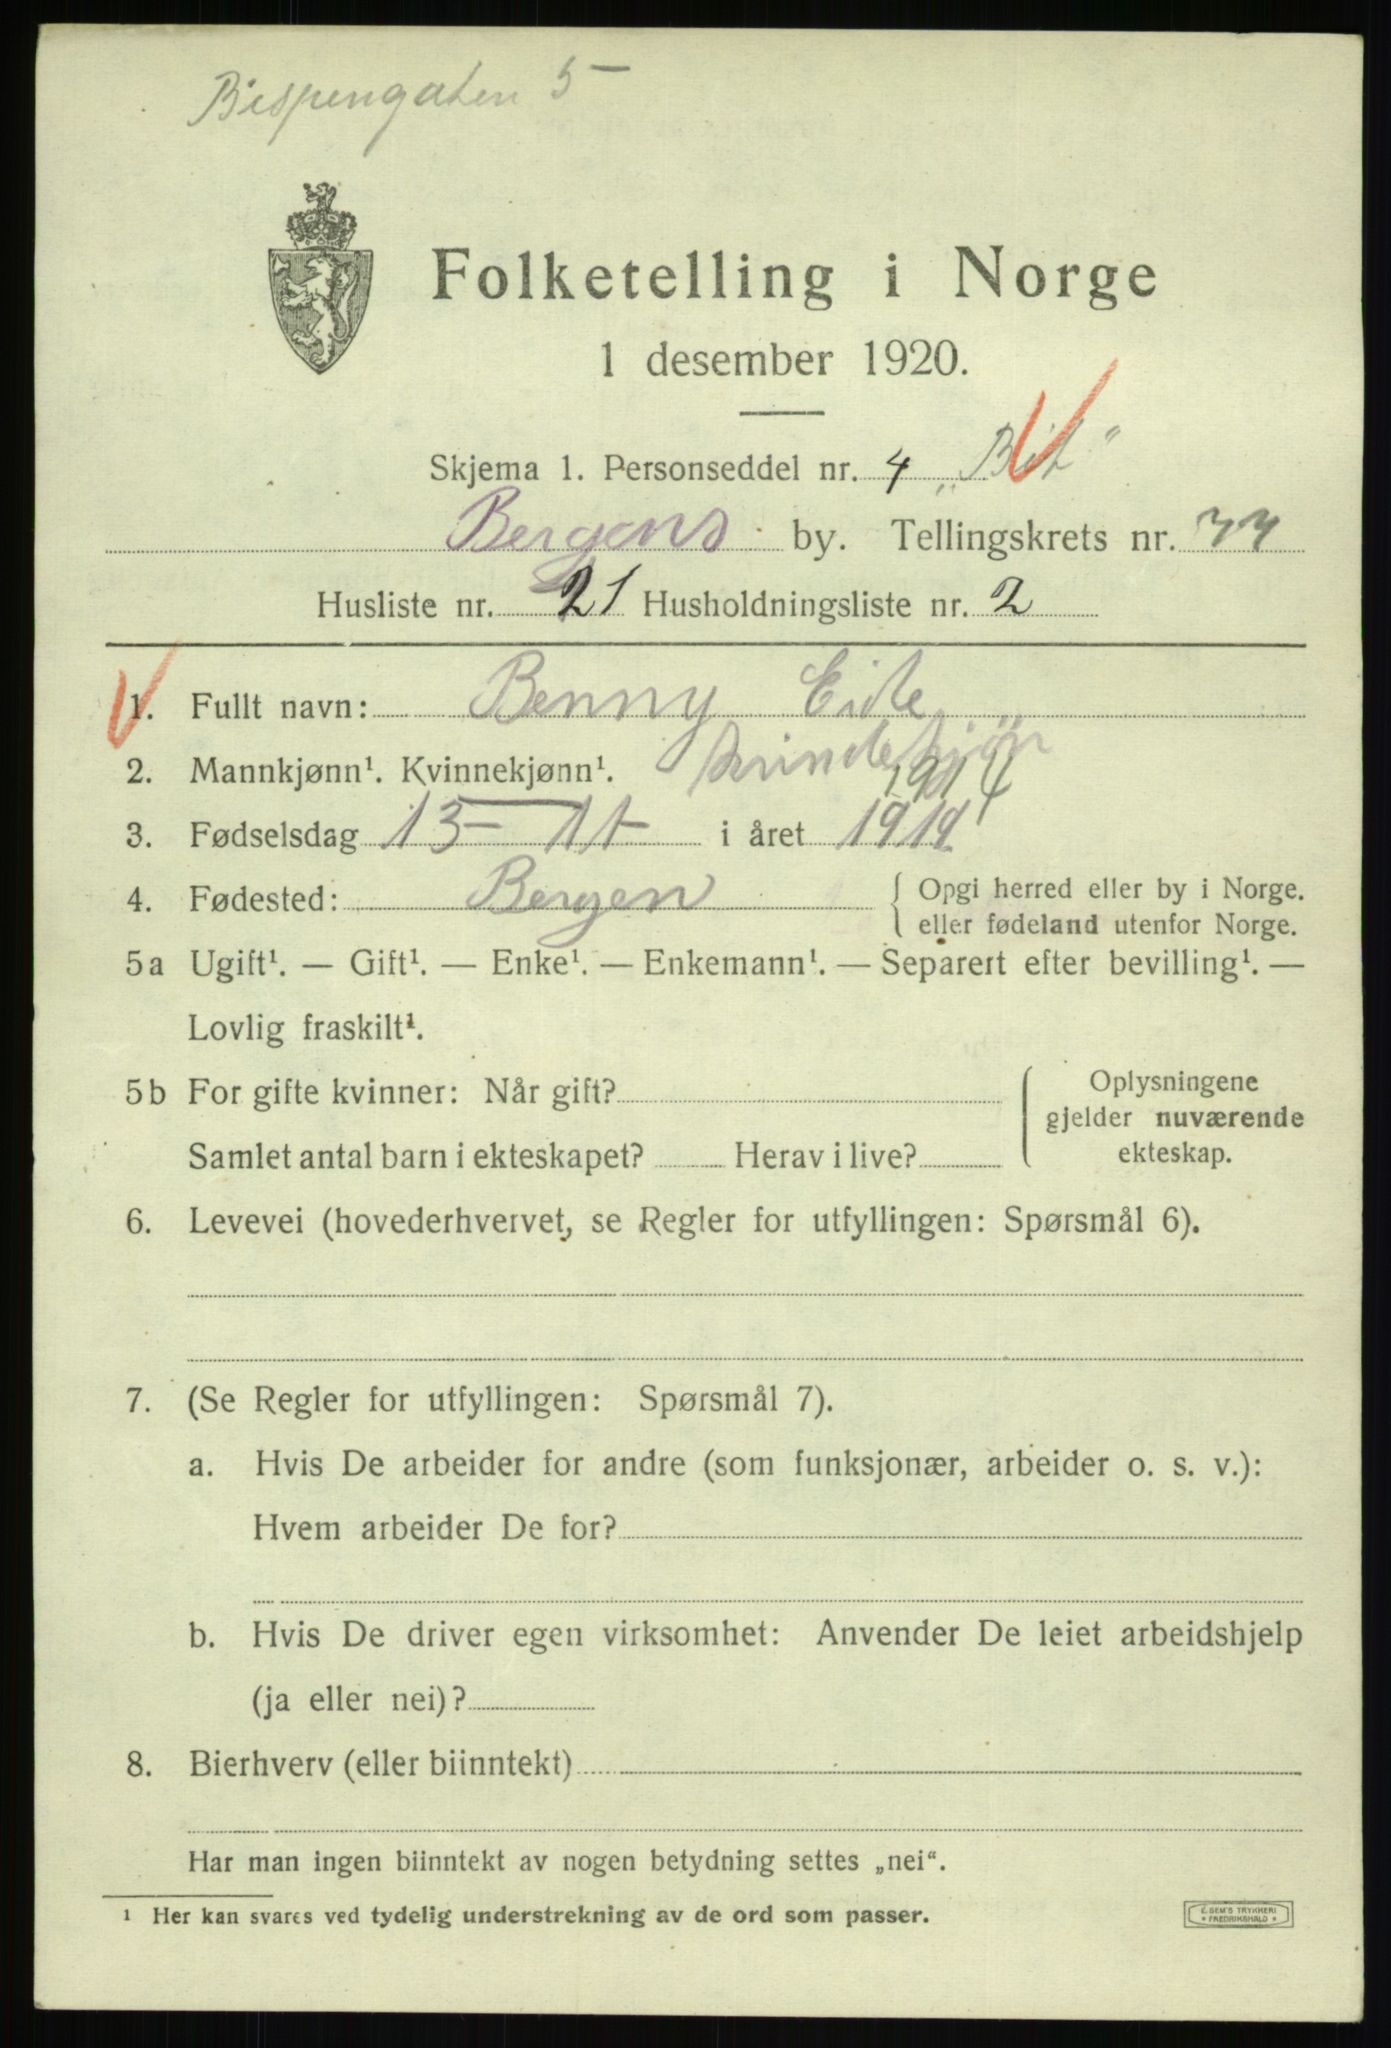 Bispengaten 5
Folketelling i Norge
1 desember 1920.
Skjema 1. Personseddel nr. 4
Bergens by. Tellingskrets nr. 77
Husliste nr. 21 Husholdningsliste nr. 2
1. Fullt navn: Benny Eide
2. Mannkjønn¹. Kvinnekjønn¹. kvindekjön
1914
3. Fødselsdag 13-11- i året 1914
4. Fødested: Bergen { Opgi herred eller by i Norge.
eller fødeland utenfor Norge.
5a Ugift¹. — Gift¹. — Enke¹. — Enkemann¹. — Separert efter bevilling¹. —
Lovlig fraskilt¹.
5b For gifte kvinner: Når gift?
Samlet antal barn i ekteskapet? Herav i live?
Oplysningene
gjelder nuværende
ekteskap.
6. Levevei (hovederhvervet, se Regler for utfyllingen: Spørsmål 6).
7. (Se Regler for utfyllingen: Spørsmål 7).
a. Hvis De arbeider for andre (som funksjonær, arbeider o. s. v.):
Hvem arbeider De for?
b. Hvis De driver egen virksomhet: Anvender De leiet arbeidshjelp
(ja eller nei)?
8. Bierhverv (eller biinntekt)
Har man ingen biinntekt av nogen betydning settes „nei“.
¹ Her kan svares ved tydelig understrekning av de ord som passer.
E. SEM'S TRYKKERI
* FREDRIKSHALD *